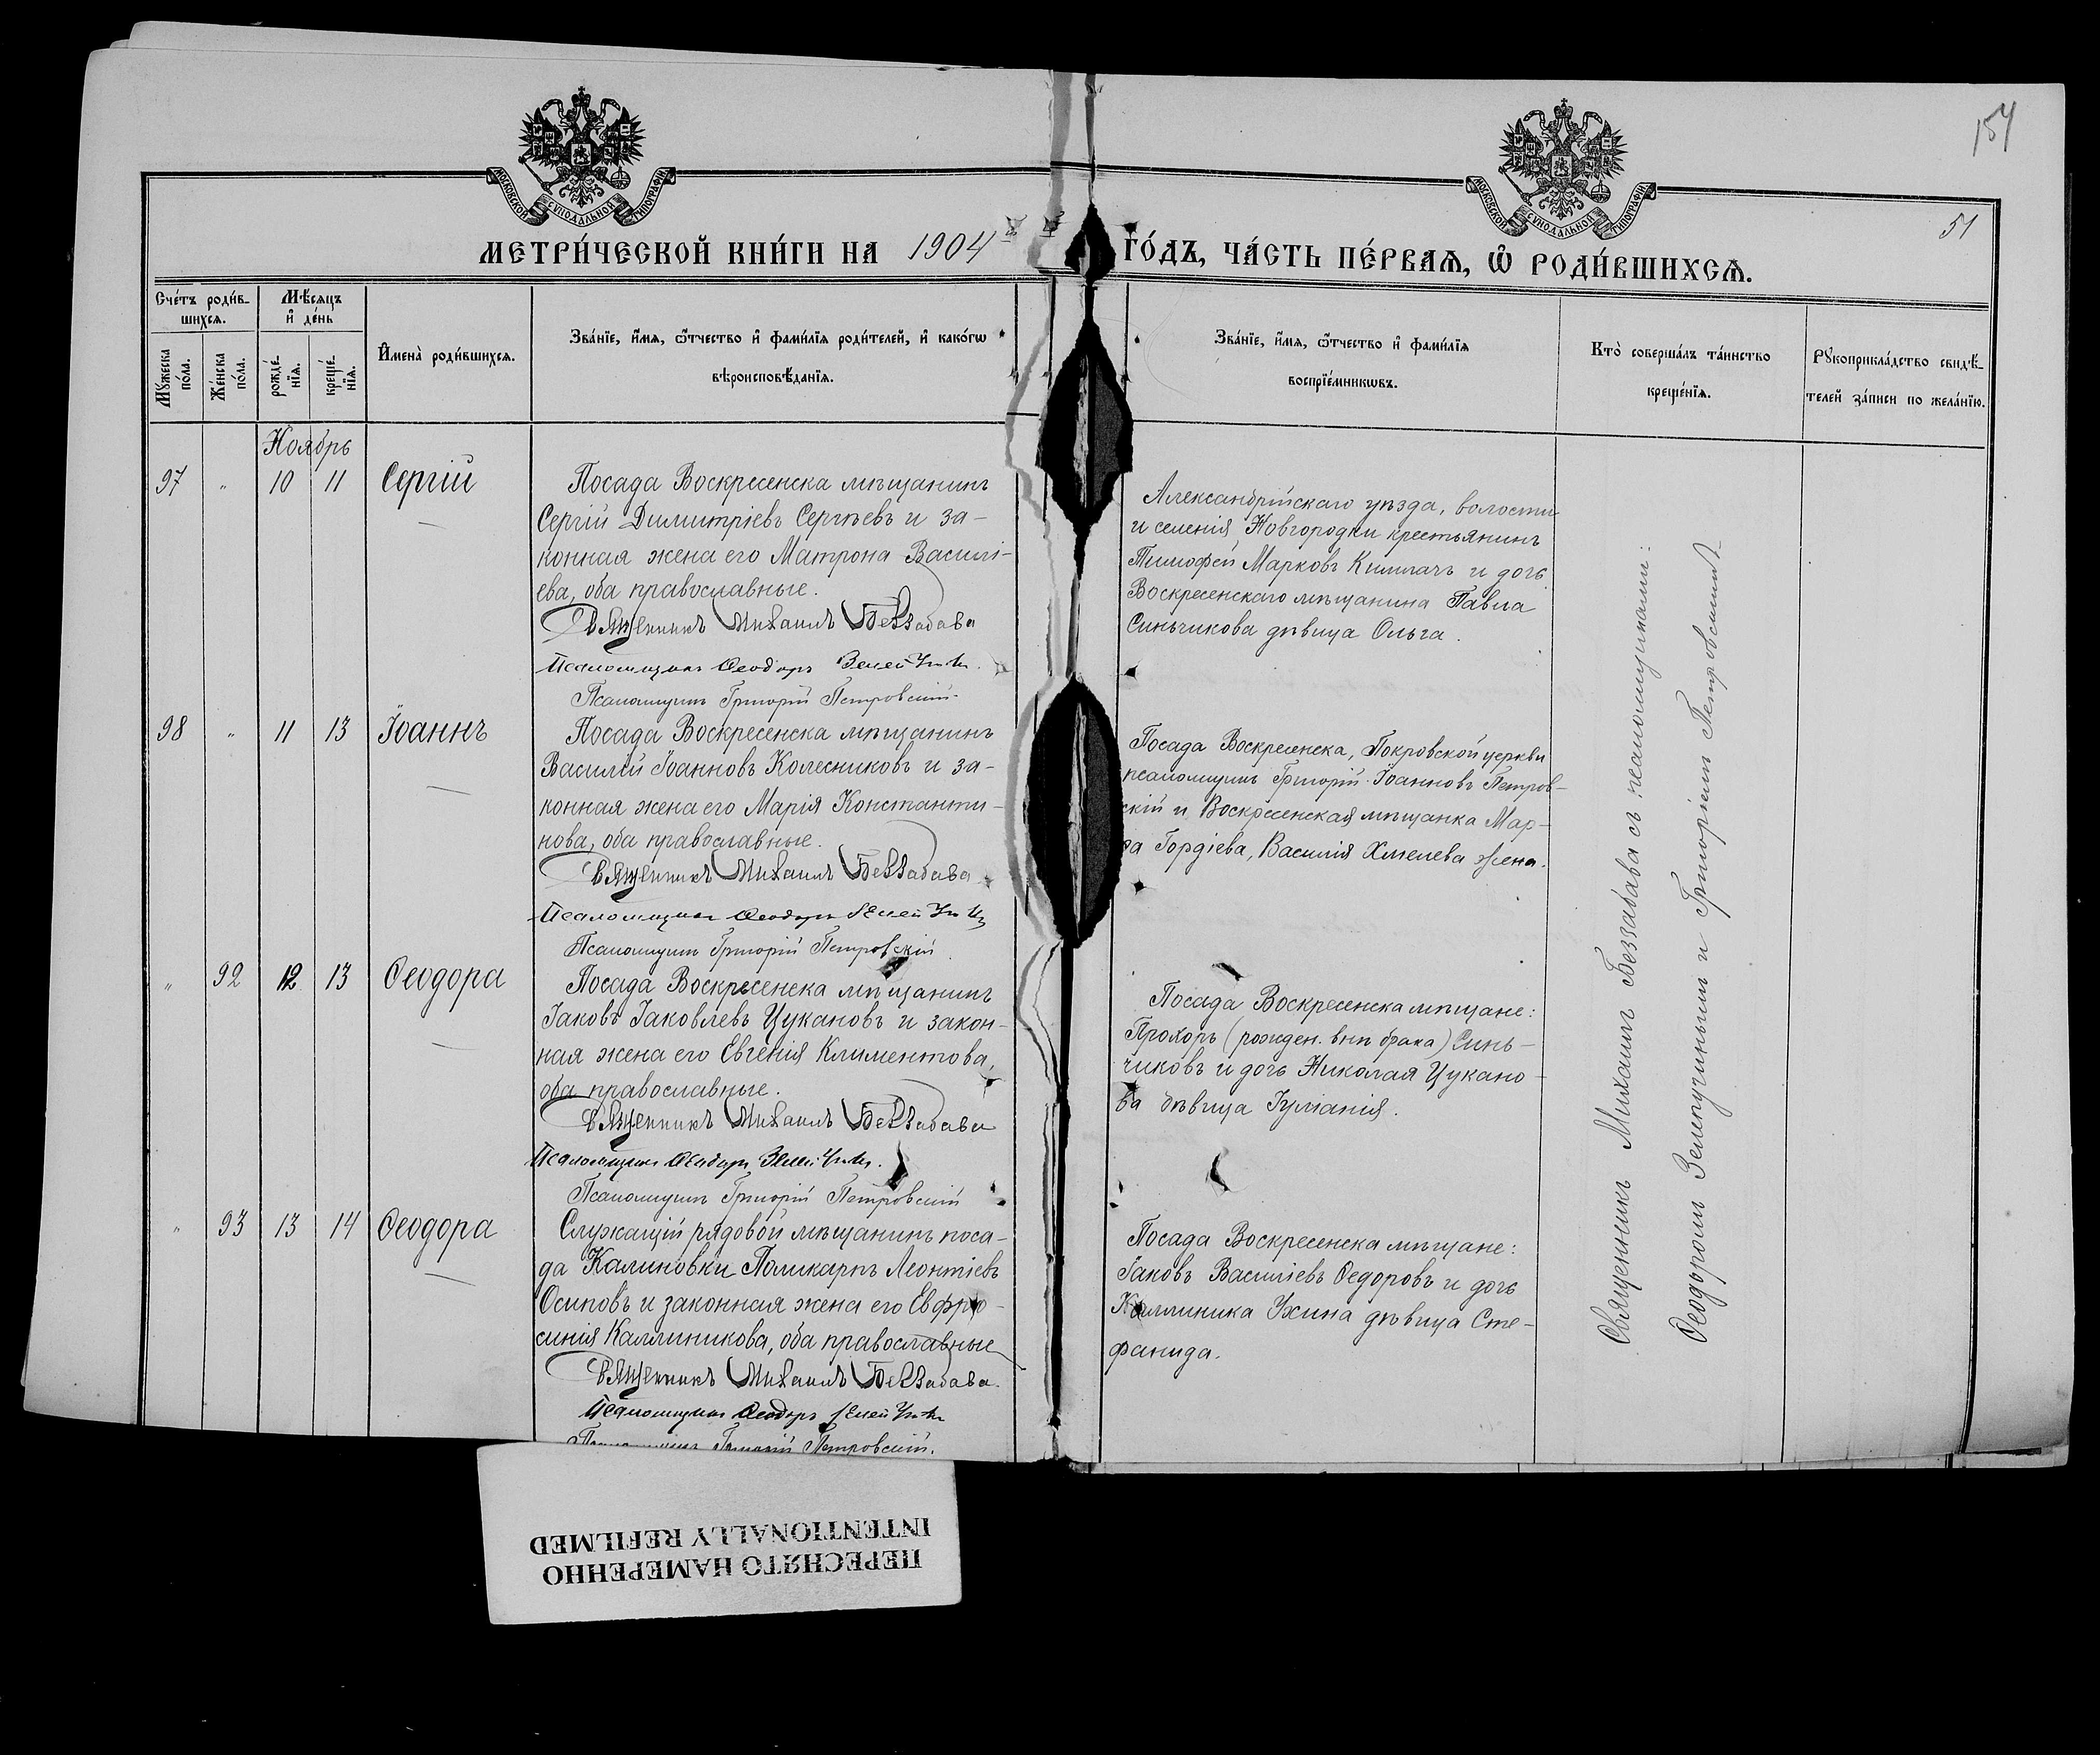 154
51
МОСКОВСКОЙ СѴНОДАЛЬНОЙ ТИПОГРАФІИ
МОСКОВСКОЙ СѴНОДАЛЬНОЙ ТИПОГРАФІИ
МЕТРИ́ЧЕСКОЙ КНИ́ГИ НА 1904й ГО́ДЪ, ЧА́СТЬ ПЕ́РВАѦ, Ѡ҆ РОДИ́ВШИХСѦ.
Сче́тъ роди́в-
шихсѧ.
Мꙋ́жеска по́ла.
Же́нска по́ла.
Мѣ́сѧцъ
и҆ де́нь
рожде́-
нїѧ.
креще́-
нїѧ.
И҆мена̀ роди́вшихсѧ.
Зва́нїе, и҆́мѧ, ѻ҆́тчество и҆ фами́лїѧ роди́телей, и҆ како́гѡ
вѣроисповѣ́данїѧ.
Зва́нїе, и҆́мѧ, ѻ҆́тчество и҆ фами́лїѧ
воспрїе́мникѡвъ.
Кто̀ соверша́лъ та́инство
креще́нїѧ.
Рꙋкоприкла́дство свидѣ́-
телей за́писи по жела́нїю.
Ноябрь
97 " 10 11 Сергій
Посада Воскресенска мѣщанинъ
Сергій Димитріевъ Сергѣевъ и за-
конная жена его Матрона Василі-
ева, оба православные.
Священникъ Михаилъ Беззабава
Псаломщикъ Ѳеодоръ
Псаломщикъ Григорій Петровскій
Александрійскаго уѣзда, волости
и селенія Новгородки крестьянинъ
Тимофей Марковъ Килимачъ и дочь
Воскресенскаго мѣщанина Павла
Синьчикова дѣвица Ольга.
98 " 11 13 Іоаннъ
Посада Воскресенска мѣщанинъ
Василій Іоанновъ Колесниковъ и за-
конная жена его Марія Константи-
нова, оба православные.
Священникъ Михаилъ Беззабава
Псаломщикъ Ѳеодоръ
Псаломщикъ Григорій Петровскій
Посада Воскресенска, Покровской церкви
псаломщикъ Григорій Іоанновъ Петров-
скій и Воскресенская мѣщанка Мар-
ѳа Гордіева, Василія Хмелева жена.
" 92 12 13 Ѳеодора
Посада Воскресенска мѣщанинъ
Іаковъ Іаковлевъ Цукановъ и закон-
ная жена его Евгенія Климентова,
оба православные.
Священникъ Михаилъ Беззабава
Псаломщикъ Ѳеодоръ
Псаломщикъ Григорій Петровскій
Посада Воскресенска мѣщане:
Прохоръ (рожден. внѣ брака) Синь-
чиковъ и дочь Николая Цукано-
ва дѣвица Іуліанія.
" 93 13 14 Ѳеодора
Служащій рядовой мѣщанинъ поса-
да Калиновки Поликарпъ Леонтіевъ
Осиповъ и законная жена его Евфро-
синія Каллиникова, оба православные
Священникъ Михаилъ Беззабава
Псаломщикъ Ѳеодоръ
Псаломщикъ Григорій Петровскій.
Посада Воскресенска мѣщане:
Іаковъ Василіевъ Ѳедоровъ и дочь
Каллиника Ухина дѣвица Сте-
фанида.
Священникъ Михаилъ Беззабава съ псаломщиками:
Ѳеодоромъ Зелепучинымъ и Григоріемъ Петровскимъ
ПЕРЕСНЯТО НАМЕРЕННО
INTENTIONALLY REFILMED